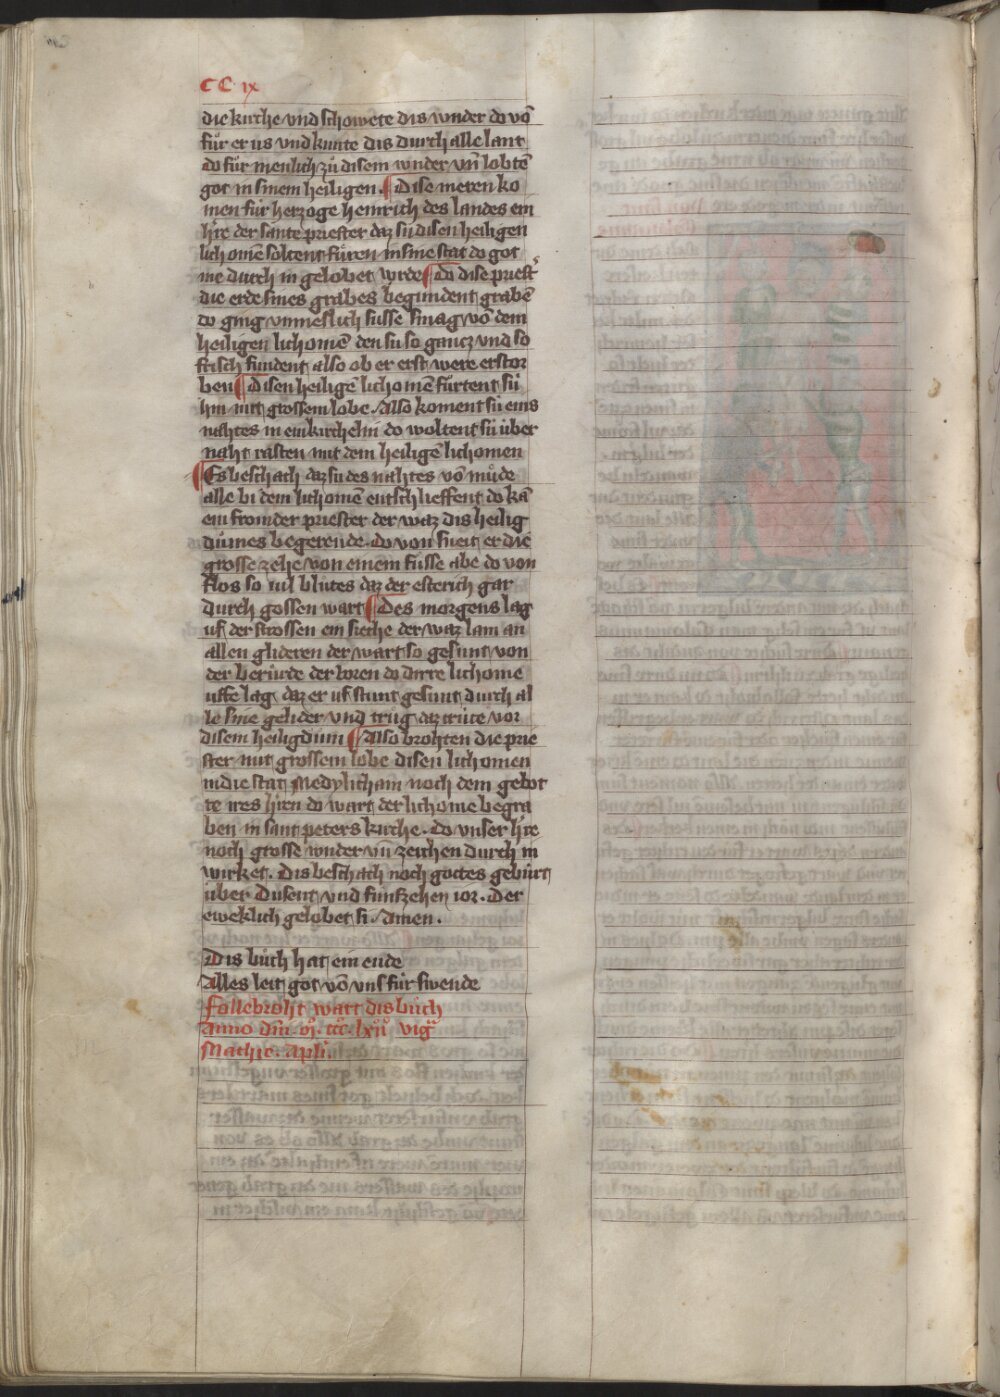 CC ix
die kirche vnd schowete dis wnder do vō
fůr er us vnd kunte dis durch alle lant
do fůr menlich zů disem wnder vn̄ lobtē
got in sinem heiligen. Dise meren ko
men fůr herzoge heinrich des landes ein
h're der sante priester daz sú disen heiligen
lichomē soltent fůren in sine stat do got
me durch in gelobet wrde do dise priest'
die erde sines grabes begundent grabē
do ging vnmeslich susse smag vō dem
heiligen lichomē den sú so gancz vnd so
frisch fundent also ob er erst were erstor
ben disen heiligē lichomē fůrtent sú
hin mit grossem lobe. Also koment sú eins
nahtes in ein kirchelin do woltent sú úber
naht rasten mit dem heiligē lichomen
Es beschach daz sú des nahtes vō můde
alle bi dem lichomē entschlieffent do kā
ein fromder priester der waz dis heilig
důmes begerende. do von sneit er die
grosse zehe von einem fůsse abe do von
flos so vil blůtes daz der esterich gar
durch gossen wart Des morgens lag
uf der strossen ein sieche der waz lam an
allen glideren der wart so gesunt von
der berůrde der boren do dirre lichome
uffe lag daz er uf stunt gesunt durch al
le sine gelider vnd trůg daz crúce vor
disem heiligdum Also brohten die prie
ster mit grossem lobe disen lichomen
in die stat Medylicham noch dem gebot
te ires h'ren do wart der lichome begra
ben in sant peters kirche. do vnser h're
noch grosse wnder vn̄ zeichen durch in
wirket. Dis beschach noch gottes gebúrt
úber Dusent vnd fúnfzehen ior. Der
eweklich gelobet si. Amen.
Dis bůch hat ein ende
Alles leit got vō vns fúr swende
follebroht wart dis bůch
anno dn̄i. mͦ. cccͦ. lxijͦ vigᵃ
Mathie. Apli.